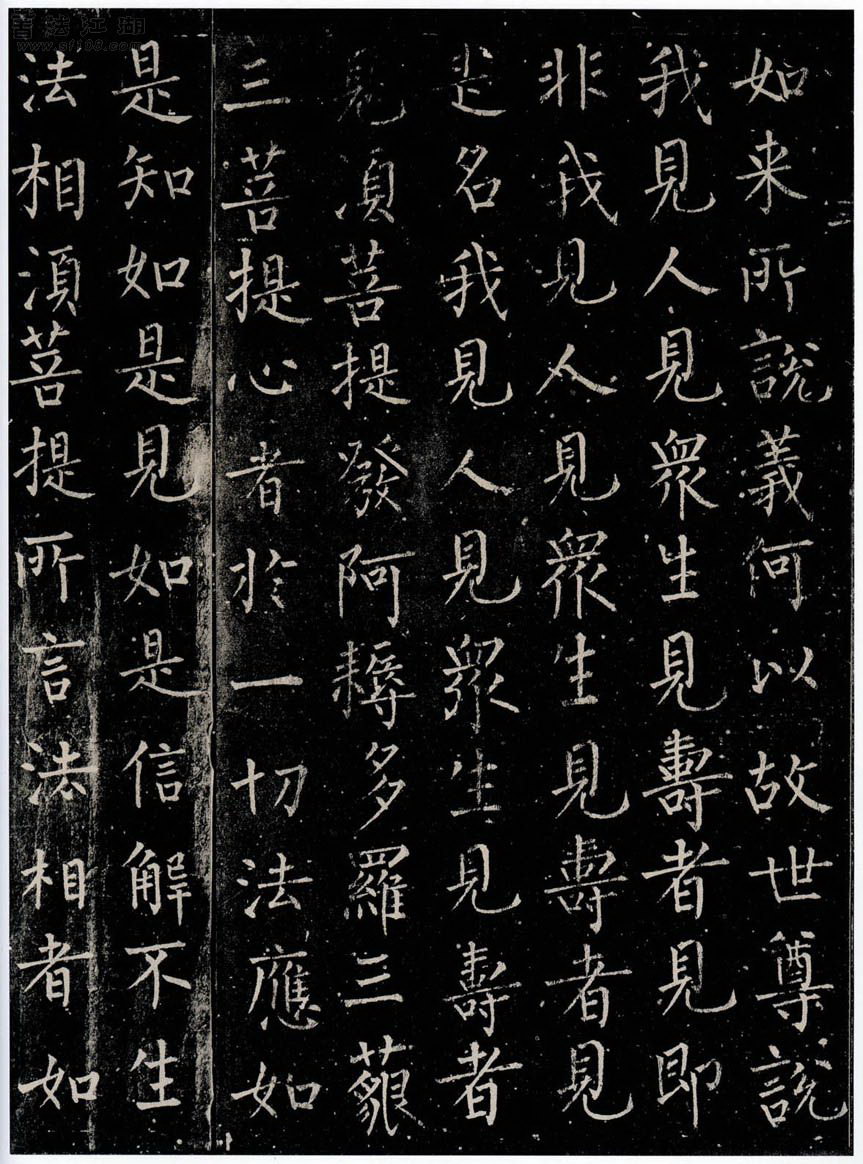 如来所說義何以故世尊說
我見人見衆生見壽者見即
非我見人見衆生見壽者見
是名我見人見衆生見壽者
見湏菩提發阿耨多羅三藐
三菩提心者於一切法應如
是知如是見如是信解不生
法相湏菩提所言法相者如
書法江湖
www.sf108.com